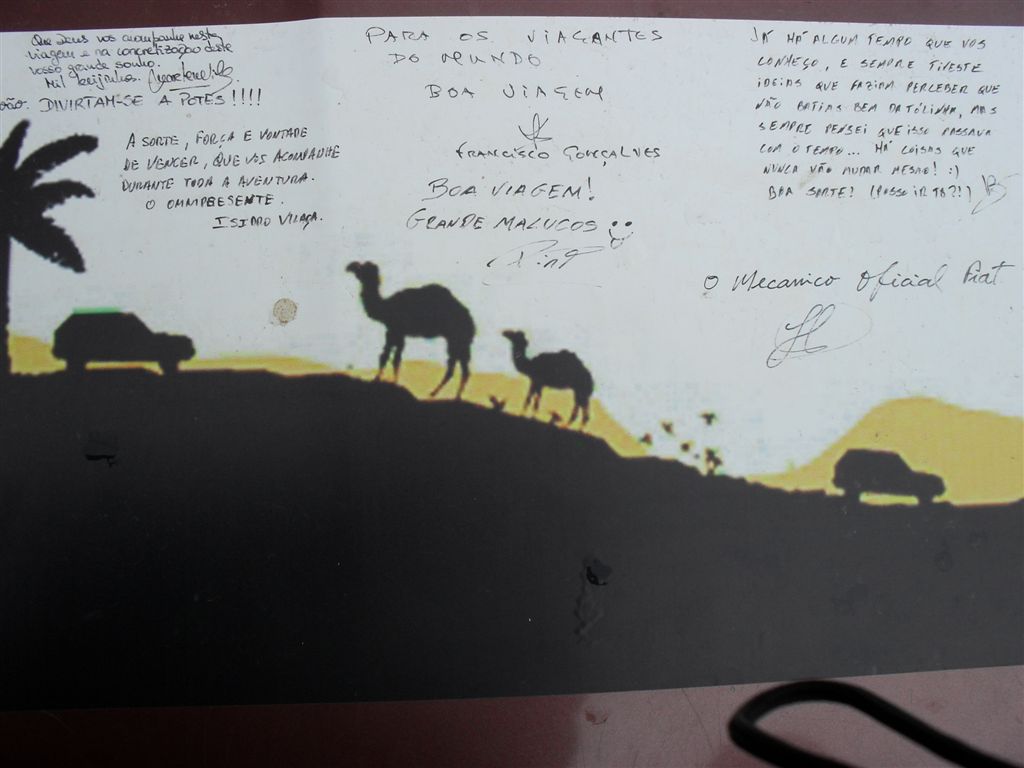 Que Deus vos acompanhe nesta
viagem e na concretização deste
vosso grande sonho.
Mil beijinhos.
DIVIRTAM-SE A POTES!!!!
A SORTE, FORÇA E VONTADE
DE VENCER, QUE VOS ACOMPANHE
DURANTE TODA A AVENTURA.
O OMNIPRESENTE.
ISIDRO VILAÇA.
PARA OS VIAGANTES
DO MUNDO
BOA VIAGEM
FRANCISCO GONÇALVES
BOA VIAGEM!
GRANDE MALUCOS
JÁ HÁ ALGUM TEMPO QUE VOS
CONHEÇO, E SEMPRE TIVESTE
IDEIAS QUE FAZIAM PERCEBER QUE
NÃO BATIAS BEM DA TÓLINHA, MAS
SEMPRE PENSEI QUE ISSO PASSAVA
COM O TEMPO... HÁ COISAS QUE
NUNCA VÃO MUDAR MESMO! :)
BOA SORTE! (POSSO IR TB?!)
O Mecanico Oficial Fiat.